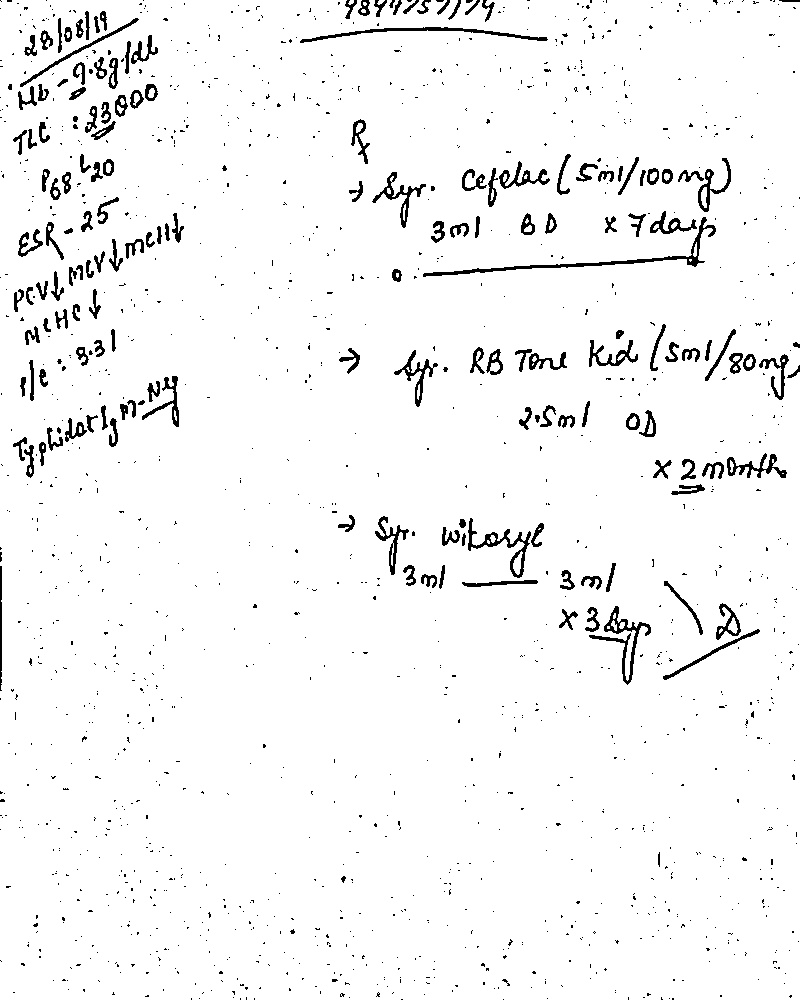 28/08/19
Hb - 9.8g/dl
TLC : 23000
P68 L20
ESR - 25
PCV↓ MCV↓ MCH↓
MCHC ↓
: 3.31
Typhidot IgM - Neg
Rx
→ Syr. Cefelac (5ml/100mg)
3ml BD x 7 days
→ Syr. RB Tone Kid (5ml/80mg)
2.5ml OD
x 2 month
→ Syr. Wikoryl
3ml — 3ml
x 3 days